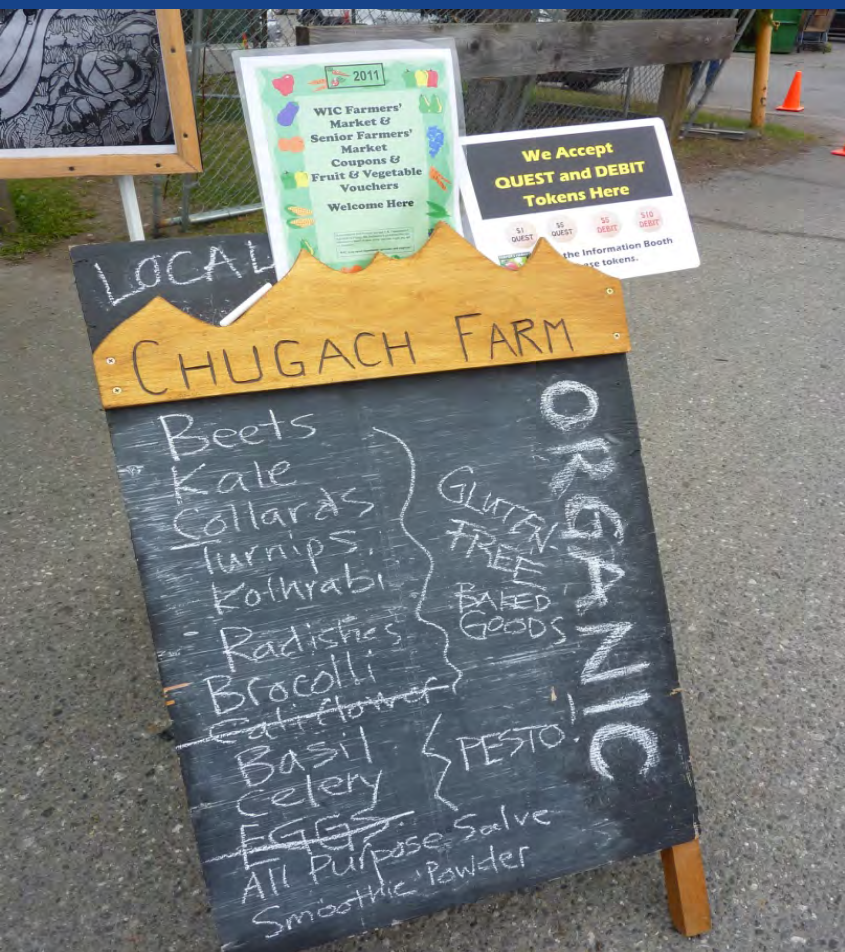 2011
WIC Farmers'
Market &
Senior Farmers'
Market
Coupons &
Fruit & Vegetable
Vouchers
Welcome Here
We Accept
QUEST and DEBIT
Tokens Here
$1 QUEST $5 QUEST $5 DEBIT $10 DEBIT
the Information Booth
se tokens.
LOCAL
CHUGACH FARM
ORGANIC
Beets
Kale
Collards
Turnips.
Kolhrabi
Radishes
Brocolli
Califlower
Basil
Celery
EGGS
All Purpose Salve
Smoothie Powder
GLUTEN
FREE
BAKED
GOODS
PESTO!